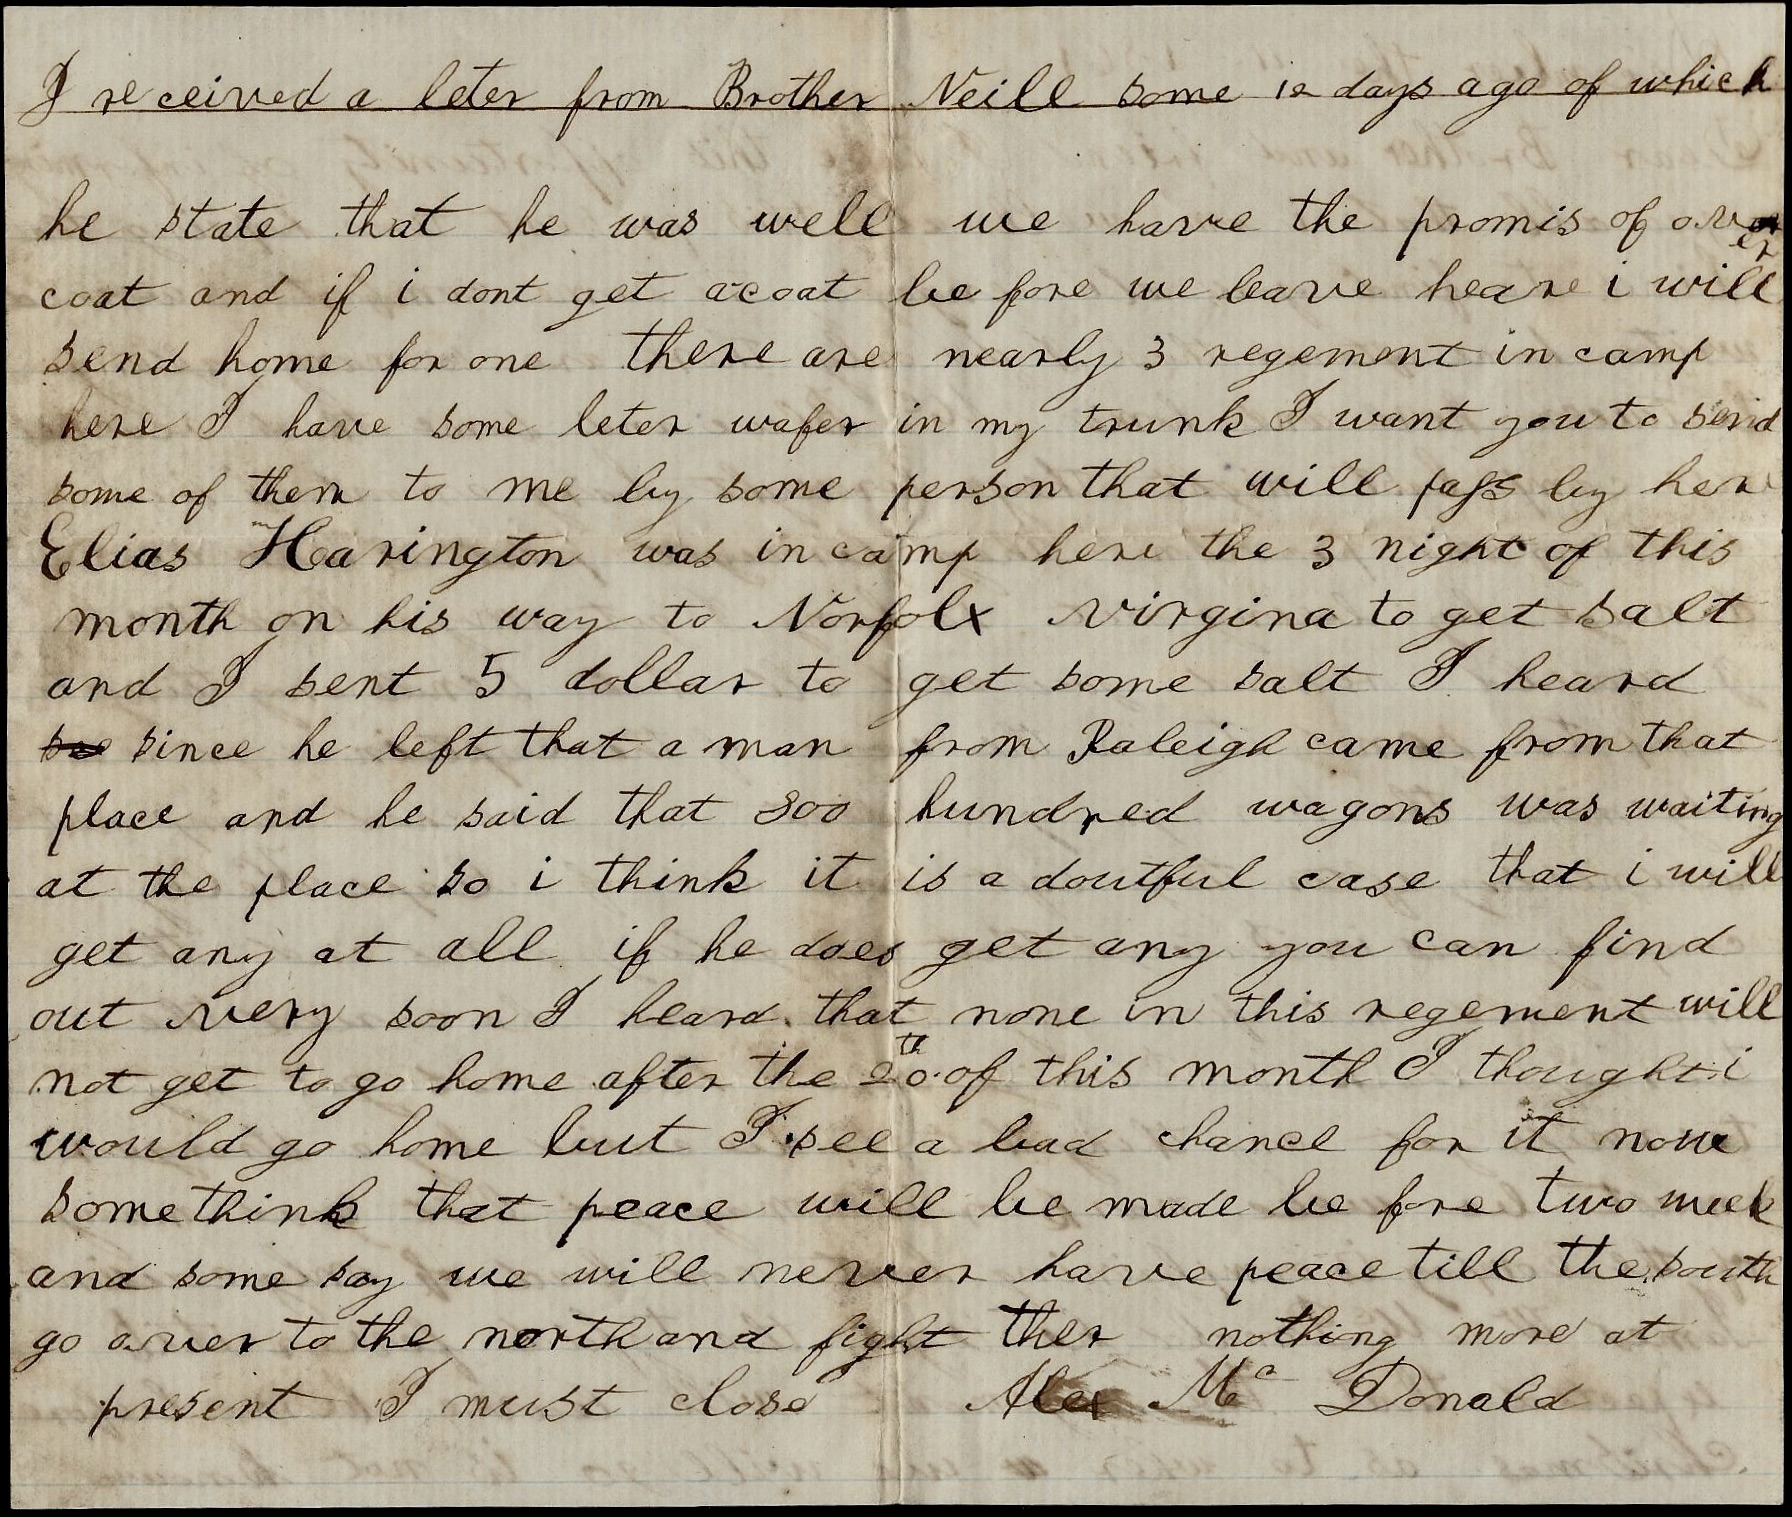 I received a leter from Brother Neill some 12 days ago of which
he state that he was well we have the promis of over
coat and if i dont get a coat be fore we leave heare i will
send home for one there are nearly 3 regement in camp
here I have some leter wafer in my trunk I want you to send
some of them to me by some person that will pass by her
Elias Harington was in camp here the 3 night of this
month on his way to Norfolk virgina to get salt
and I sent 5 dollar to get some salt I heard
since he left that a man from Raleigh came from that
place and he said that 300 hundred wagons was waiting
at the place so i think it is a doutful case that i will
get any at all if he does get any you can find
out very soon I heard that none in this regement will
not get to go home after the 20th of this month I thought i
would go home but I see a bad chance for it now
some think that peace will be made be fore two week
and some say we will never have peace till the south
go over to the north and fight ther nothing more at
present I must close Alex Mc Donald